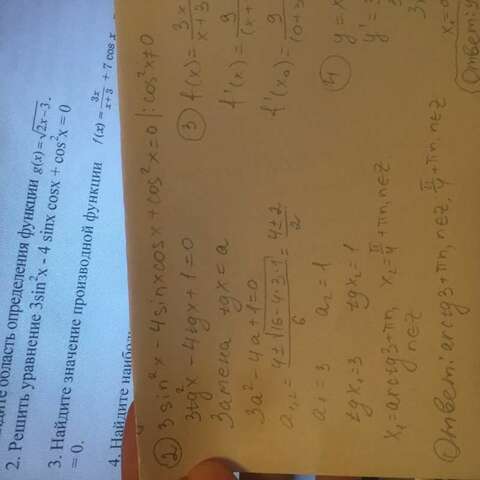 дите область определения функции g(x)=√2x−3.
2. Решить уравнение 3sin²x - 4 sinx cosx + cos²x = 0
3. Найдите значение производной функции f(x) = 3x/x+3 + 7 cos x
= 0.
4. Найдите наибо
② 3sin²x − 4sinxcosx + cos²x=0 |:cos²x≠0
3tg²x − 4tgx + 1 = 0
Замена tgx = a
3a² − 4a + 1 = 0
a₁,₂ = 4±√16−4·3·1/6 = 4±2/2
a₁ = 3 a₂ = 1
tgx₁=3 tgx₂=1
x₁=arctg3+πn, x₂=π/4+πn, n∈Z
n∈Z
Ответ: arctg3+πn, n∈Z, π/4+πn, n∈Z
③ f(x) = 3x/x+3
f'(x) = 9/(x+
f'(x₀) = 9/(0+3
④ y = x
y' = 3
3
3x
x₁=0
Ответ: y